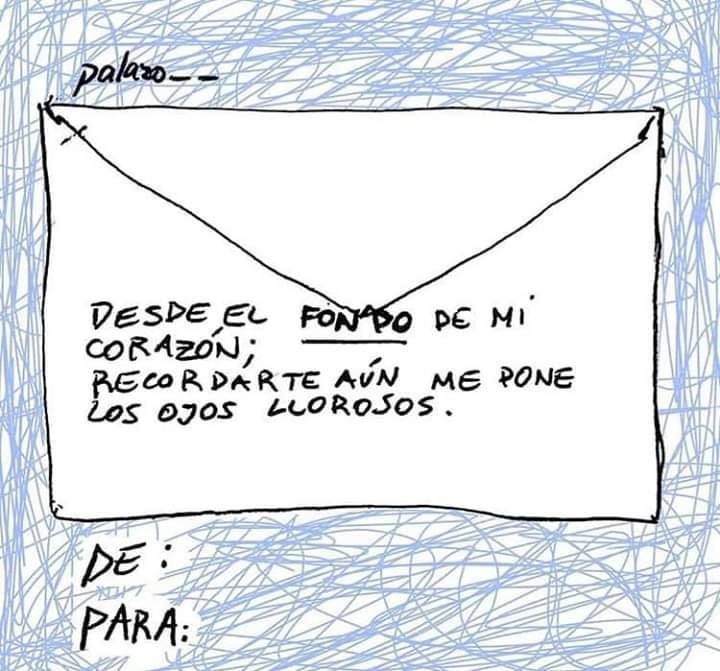 palazo--
DESDE EL FONDO DE MI
CORAZÓN;
RECORDARTE AÚN ME PONE
LOS OJOS LLOROSOS.
DE:
PARA: